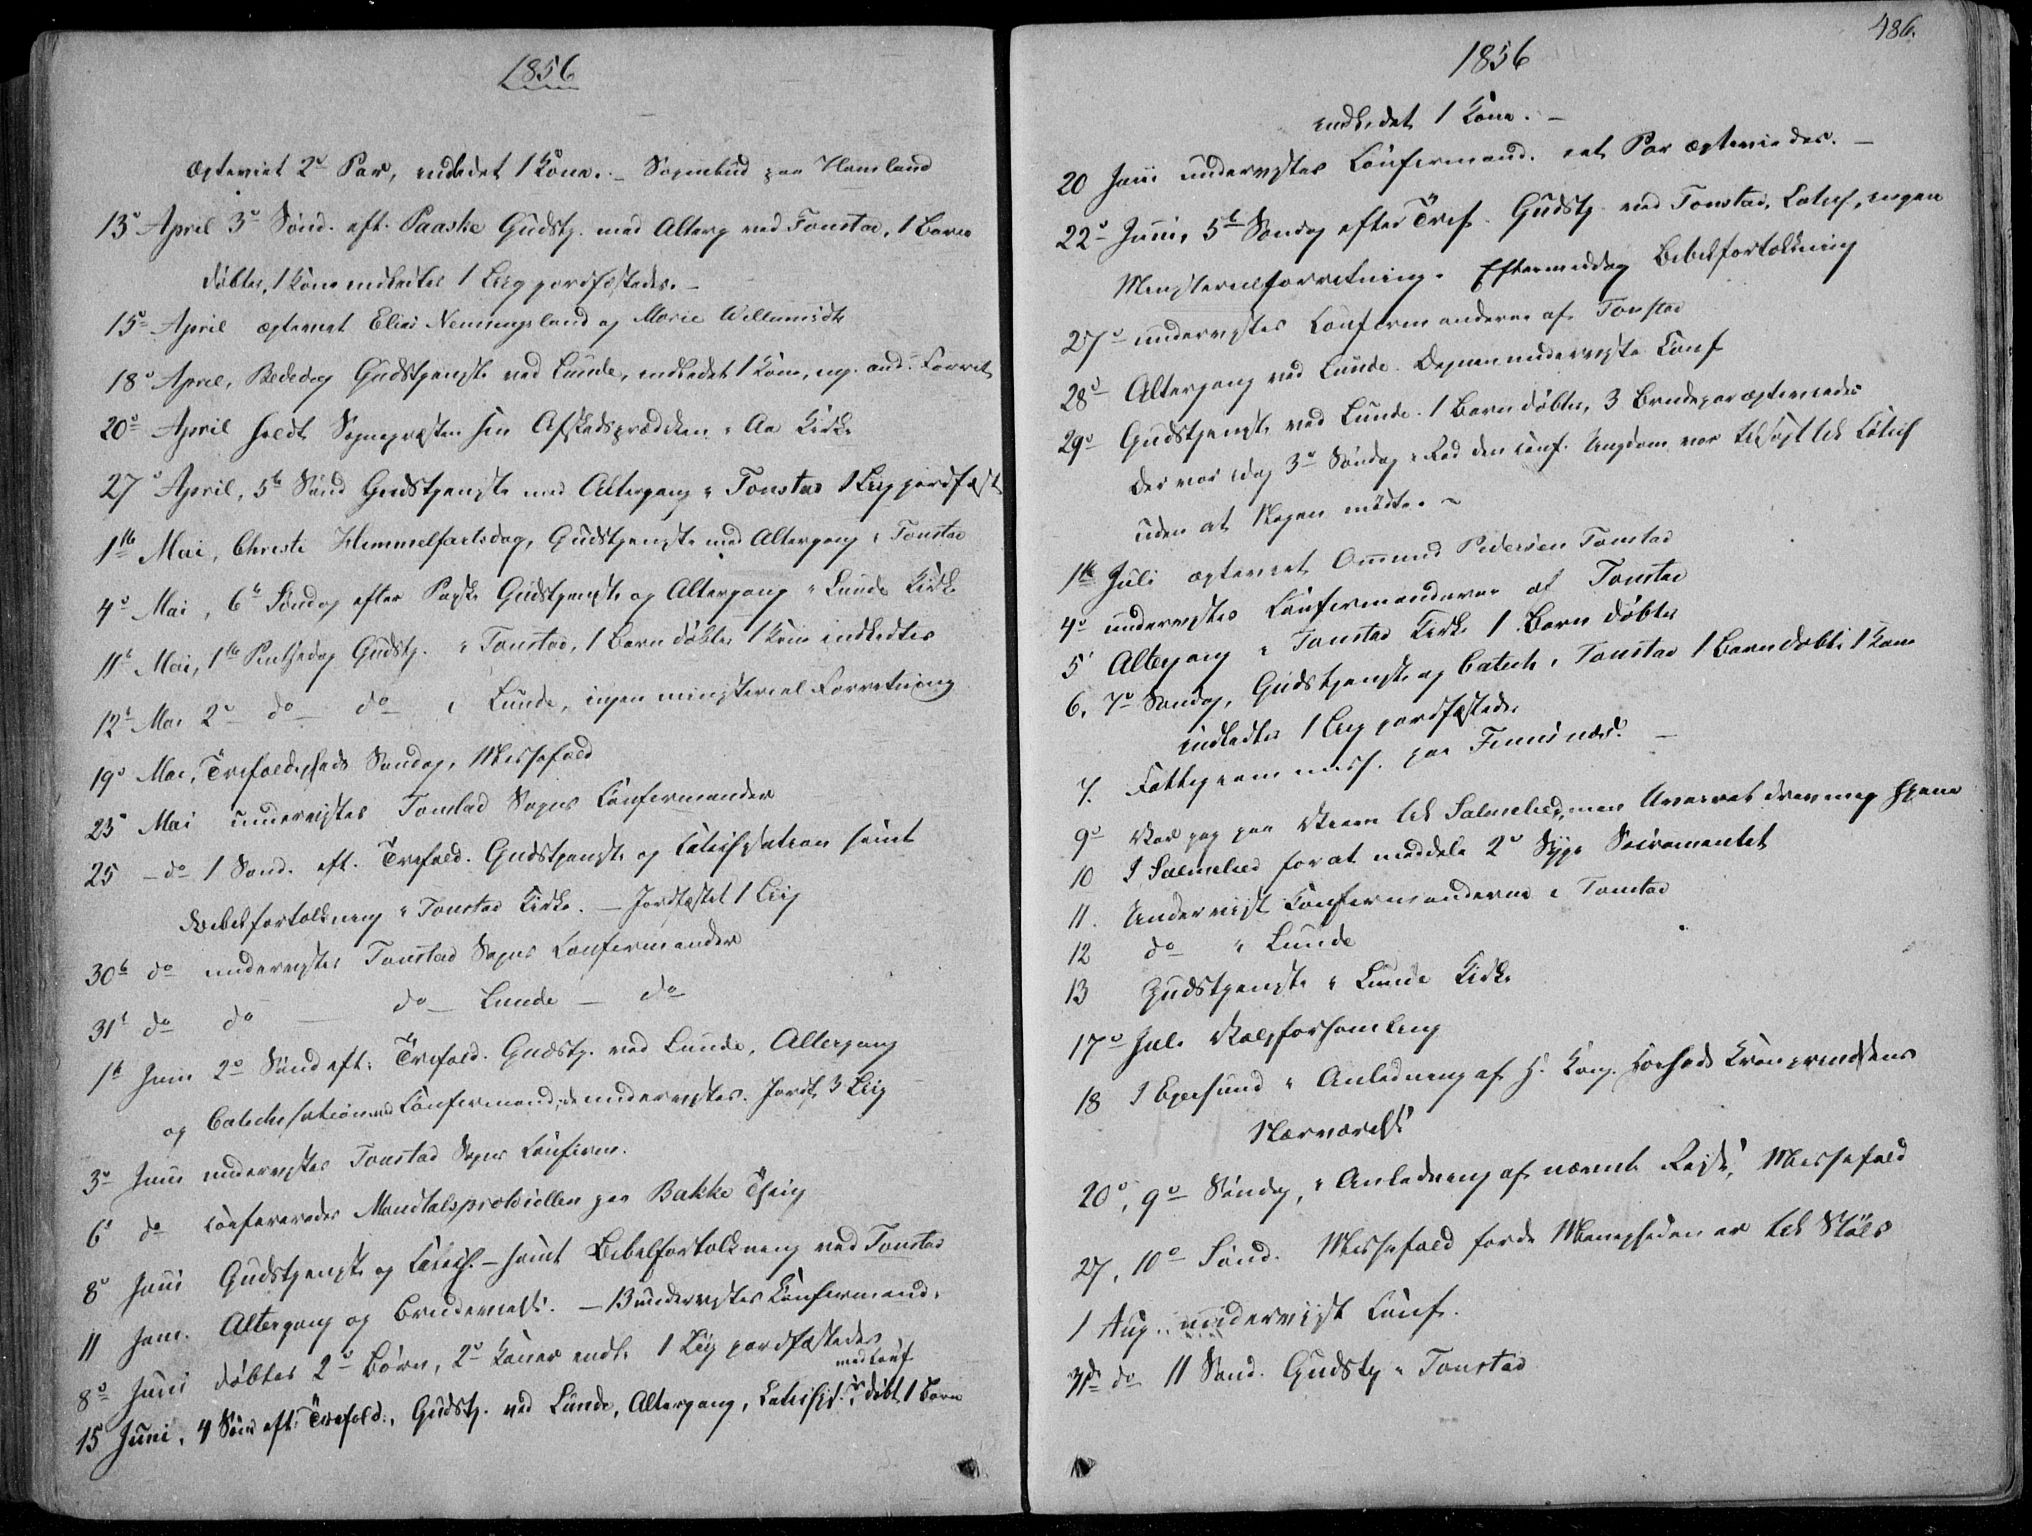 1856
Ægteviet 2de Par, indledet 1 Kone. – Sognebud paa Hamland
13de April 3die Sønd. eft. Paaske Gudstj. med Alterg ved Tonstad, 1 Barn
døbtes, 1 Kone indledtes 1 Liig jordfæstedes. –
15de April ægteviet Elias Nenningsland og Marie Willumsdtr
18de April, Bededag Gudstjeneste ved Lunde, indledet 1 Kone, ing. and. Forret
20de April holdt Sognepresten sin Afskedsprædiken i Aa Kirke
27de April, 5te Sønd Gudstjeneste med Altergang i Tonstad 1 Liig jordfæst
1ste Mai, Christi Himmelfartsdag, Gudstjeneste med Altergang i Tonstad
4de Mai, 6te Søndag efter Paaske Gudstjeneste og Altergang i Lunde Kirke
11te Mai, 1ste Pintsedag Gudstj. i Tonstad, 1 Barn døbtes 1 Kone indledtes
12te Mai 2den do do i Lunde, ingen ministeriel Forretning
19de Mai, Trefoldigheds Søndag, Messefald
23de Mai undervistes Tonstad Sogns Confirmander
25 – do 1 Sønd. eft. Trefold. Gudstjeneste og Catechisation samt
Bibelfortolkning i Tonstad Kirke. – Jordfæstet 1 Liig
30te do undervistes Tonstad Sogns Confirmander
31te do do – do – Lunde – do
1ste Juni 2den Sønd eft. Trefold. Gudstj. ved Lunde, Altergang
og Catechisation med Confirmand. de undervistes. Jordf. 3 Liig
3die Juni undervistes Tonstad Sogns Confirm.
6te do confereredes Mandtalsprotocollen paa Bakke Thing
8de Juni Gudstjeneste og Catech. – samt Bibelfortolkning ved Tonstad
11 Juni. Altergang og Brudevielse. – 13 undervistes Confirmand.
8de Juni døbtes 2de Børn, 2de Koner indl. 1 Liig jordfæstedes
med Conf
15 Juni, 4 Sønd eft. Trefold., Gudstj. ved Lunde, Altergang, Catechis. døbt 1 Barn
486.
1856
indledet 1 Kone. –
20 Juni undervistes Confirmand. eet Par ægteviedes. –
22de Juni, 5te Søndag efter Tref. Gudstj. ved Tonstad, Catech, ingen
Ministerialforretning. Eftermiddag Bibelfortolkning
27de undervistes Confirmanderne af Tonstad
28de Altergang ved Lunde. Dagen underviste Conf
29de Gudstjeneste ved Lunde. 1 Barn døbtes, 3 Brudepar ægteviedes
Der var idag 3die Søndag i Rad den conf. Ungdom var tilsagt til Catech
uden at Nogen mødte. –
1ste Juli ægteviet Ommund Pedersen Tonstad
4de undervistes Confirmanderne af Tonstad
5te Altergang i Tonstad Kirke 1 Barn døbtes
6. 7de Søndag, Gudstjeneste og Catech. i Tonstad 1 Barn døbt. 1 Kone
indledtes 1 Liig jordfæstedes
7. Fattigcommiss. paa Finsnæs. –
9de Var jeg paa Veien til Salmelied, men Uveiret drev mig hjem
10 I Salmelied for at meddele 2de Syge Sacramentet
11. Undervist Confirmanderne i Tonstad
12 do i Lunde
13 Gudstjeneste i Lunde Kirke
17de Juli Valgforsamling
18 I Egersund i Anledning af H. Kong. Høiheds Kronprindsens
Nærværelse
20de, 9de Søndag, i Anledning af nævnte Reise, Messefald
27, 10de Sønd. Messefald fordi Menigheden er til Støls
1 Aug. undervist Conf.
3die do 11 Sønd. Gudstj i Tonstad